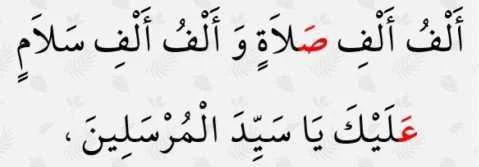 أَلْفُ أَلْفِ صَلاَةٍ وَ أَلْفُ أَلْفِ سَلاَمٍ
عَلَيْكَ يَا سَيِّدَ الْمُرْسَلِينَ ،